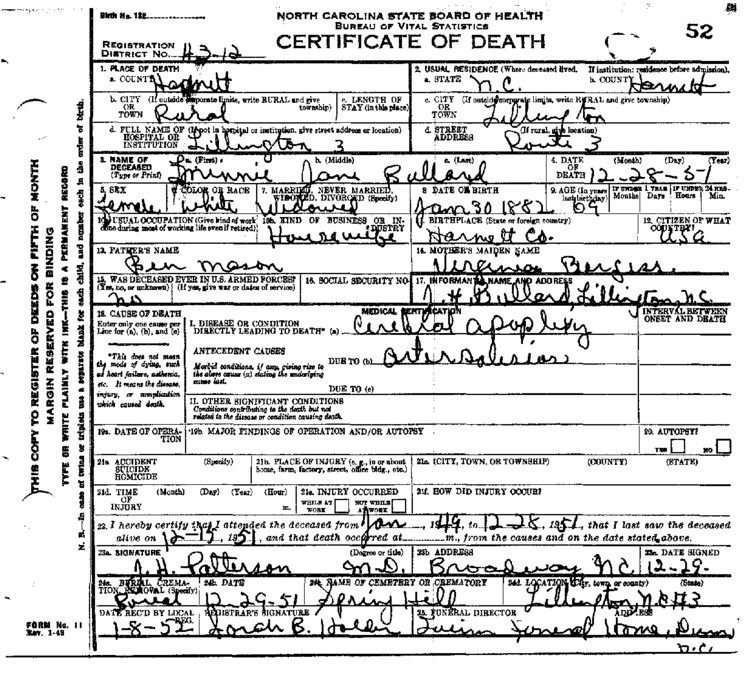 Birth No. 132
NORTH CAROLINA STATE BOARD OF HEALTH
BUREAU OF VITAL STATISTICS
CERTIFICATE OF DEATH
52
REGISTRATION DISTRICT No. 43-12
1. PLACE OF DEATH
a. COUNTY Harnett
2. USUAL RESIDENCE (Where deceased lived. If institution: residence before admission).
a. STATE N.C. b. COUNTY Harnett
b. CITY (If outside corporate limits, write RURAL and give township) OR TOWN Rural
c. LENGTH OF STAY (in this place)
c. CITY (If outside corporate limits, write RURAL and give township) OR TOWN Lillington
d. FULL NAME OF (If not in hospital or institution, give street address or location) HOSPITAL OR INSTITUTION Lillington 3
d. STREET ADDRESS (If rural, give location) Route 3
3. NAME OF DECEASED (Type or Print)
a. (First) Minnie b. (Middle) Jane c. (Last) Bullard
4. DATE OF DEATH (Month) (Day) (Year) 12-28-51
5. SEX Female
6. COLOR OR RACE White
7. MARRIED, NEVER MARRIED, WIDOWED, DIVORCED (Specify) Widowed
8. DATE OF BIRTH Jan 30 1882
9. AGE (In years last birthday) 69
IF UNDER 1 YEAR Months Days
IF UNDER 24 HRS. Hours Min.
10a. USUAL OCCUPATION (Give kind of work done during most of working life even if retired)
10b. KIND OF BUSINESS OR INDUSTRY Housewife
11. BIRTHPLACE (State or foreign country) Harnett Co.
12. CITIZEN OF WHAT COUNTRY? USA
13. FATHER'S NAME Ben Mason
14. MOTHER'S MAIDEN NAME Virginia Bergiss
15. WAS DECEASED EVER IN U.S. ARMED FORCES? (Yes, no, or unknown) (If yes, give war or dates of service) no
16. SOCIAL SECURITY NO.
17. INFORMANT'S NAME AND ADDRESS J. H. Bullard, Lillington, N.C.
18. CAUSE OF DEATH
Enter only one cause per line for (a), (b), and (c)
MEDICAL CERTIFICATION
INTERVAL BETWEEN ONSET AND DEATH
I. DISEASE OR CONDITION DIRECTLY LEADING TO DEATH* (a) Cerebral apoplexy
*This does not mean the mode of dying, such as heart failure, asthenia, etc. It means the disease, injury, or complication which caused death.
ANTECEDENT CAUSES
Morbid conditions, if any, giving rise to the above cause (a) stating the underlying cause last.
DUE TO (b)
DUE TO (c)
II. OTHER SIGNIFICANT CONDITIONS
Conditions contributing to the death but not related to the disease or condition causing death.
19a. DATE OF OPERATION
19b. MAJOR FINDINGS OF OPERATION AND/OR AUTOPSY
20. AUTOPSY?
YES NO
21a. ACCIDENT SUICIDE HOMICIDE (Specify)
21b. PLACE OF INJURY (e. g., in or about home, farm, factory, street, office bldg., etc.)
21c. (CITY, TOWN, OR TOWNSHIP) (COUNTY) (STATE)
21d. TIME OF INJURY (Month) (Day) (Year) (Hour) m.
21e. INJURY OCCURRED WHILE AT WORK NOT WHILE AT WORK
21f. HOW DID INJURY OCCUR?
22. I hereby certify that I attended the deceased from Jan, 1949, to 12-28, 1951, that I last saw the deceased
alive on 12-15, 1951, and that death occurred at m., from the causes and on the date stated above.
23a. SIGNATURE (Degree or title) J. H. Patterson M.D.
23b. ADDRESS Broadway N.C.
23c. DATE SIGNED 12-29-
24a. BURIAL, CREMATION, REMOVAL (Specify) Burial
24b. DATE 12-29-51
24c. NAME OF CEMETERY OR CREMATORY Spring Hill
24d. LOCATION (City, town, or county) (State) Lillington N.C. #3
DATE REC'D BY LOCAL REG. 1-8-52
REGISTRAR'S SIGNATURE B. Holder
25. FUNERAL DIRECTOR ADDRESS Funeral Home, Dunn
N.C.
FORM No. 11
Rev. 1-49
THIS COPY TO REGISTER OF DEEDS ON FIFTH OF MONTH
MARGIN RESERVED FOR BINDING
TYPE OR WRITE PLAINLY WITH INK—THIS IS A PERMANENT RECORD
N. B.—In case of twins or triplets use a separate blank for each child, and number each in the order of birth.